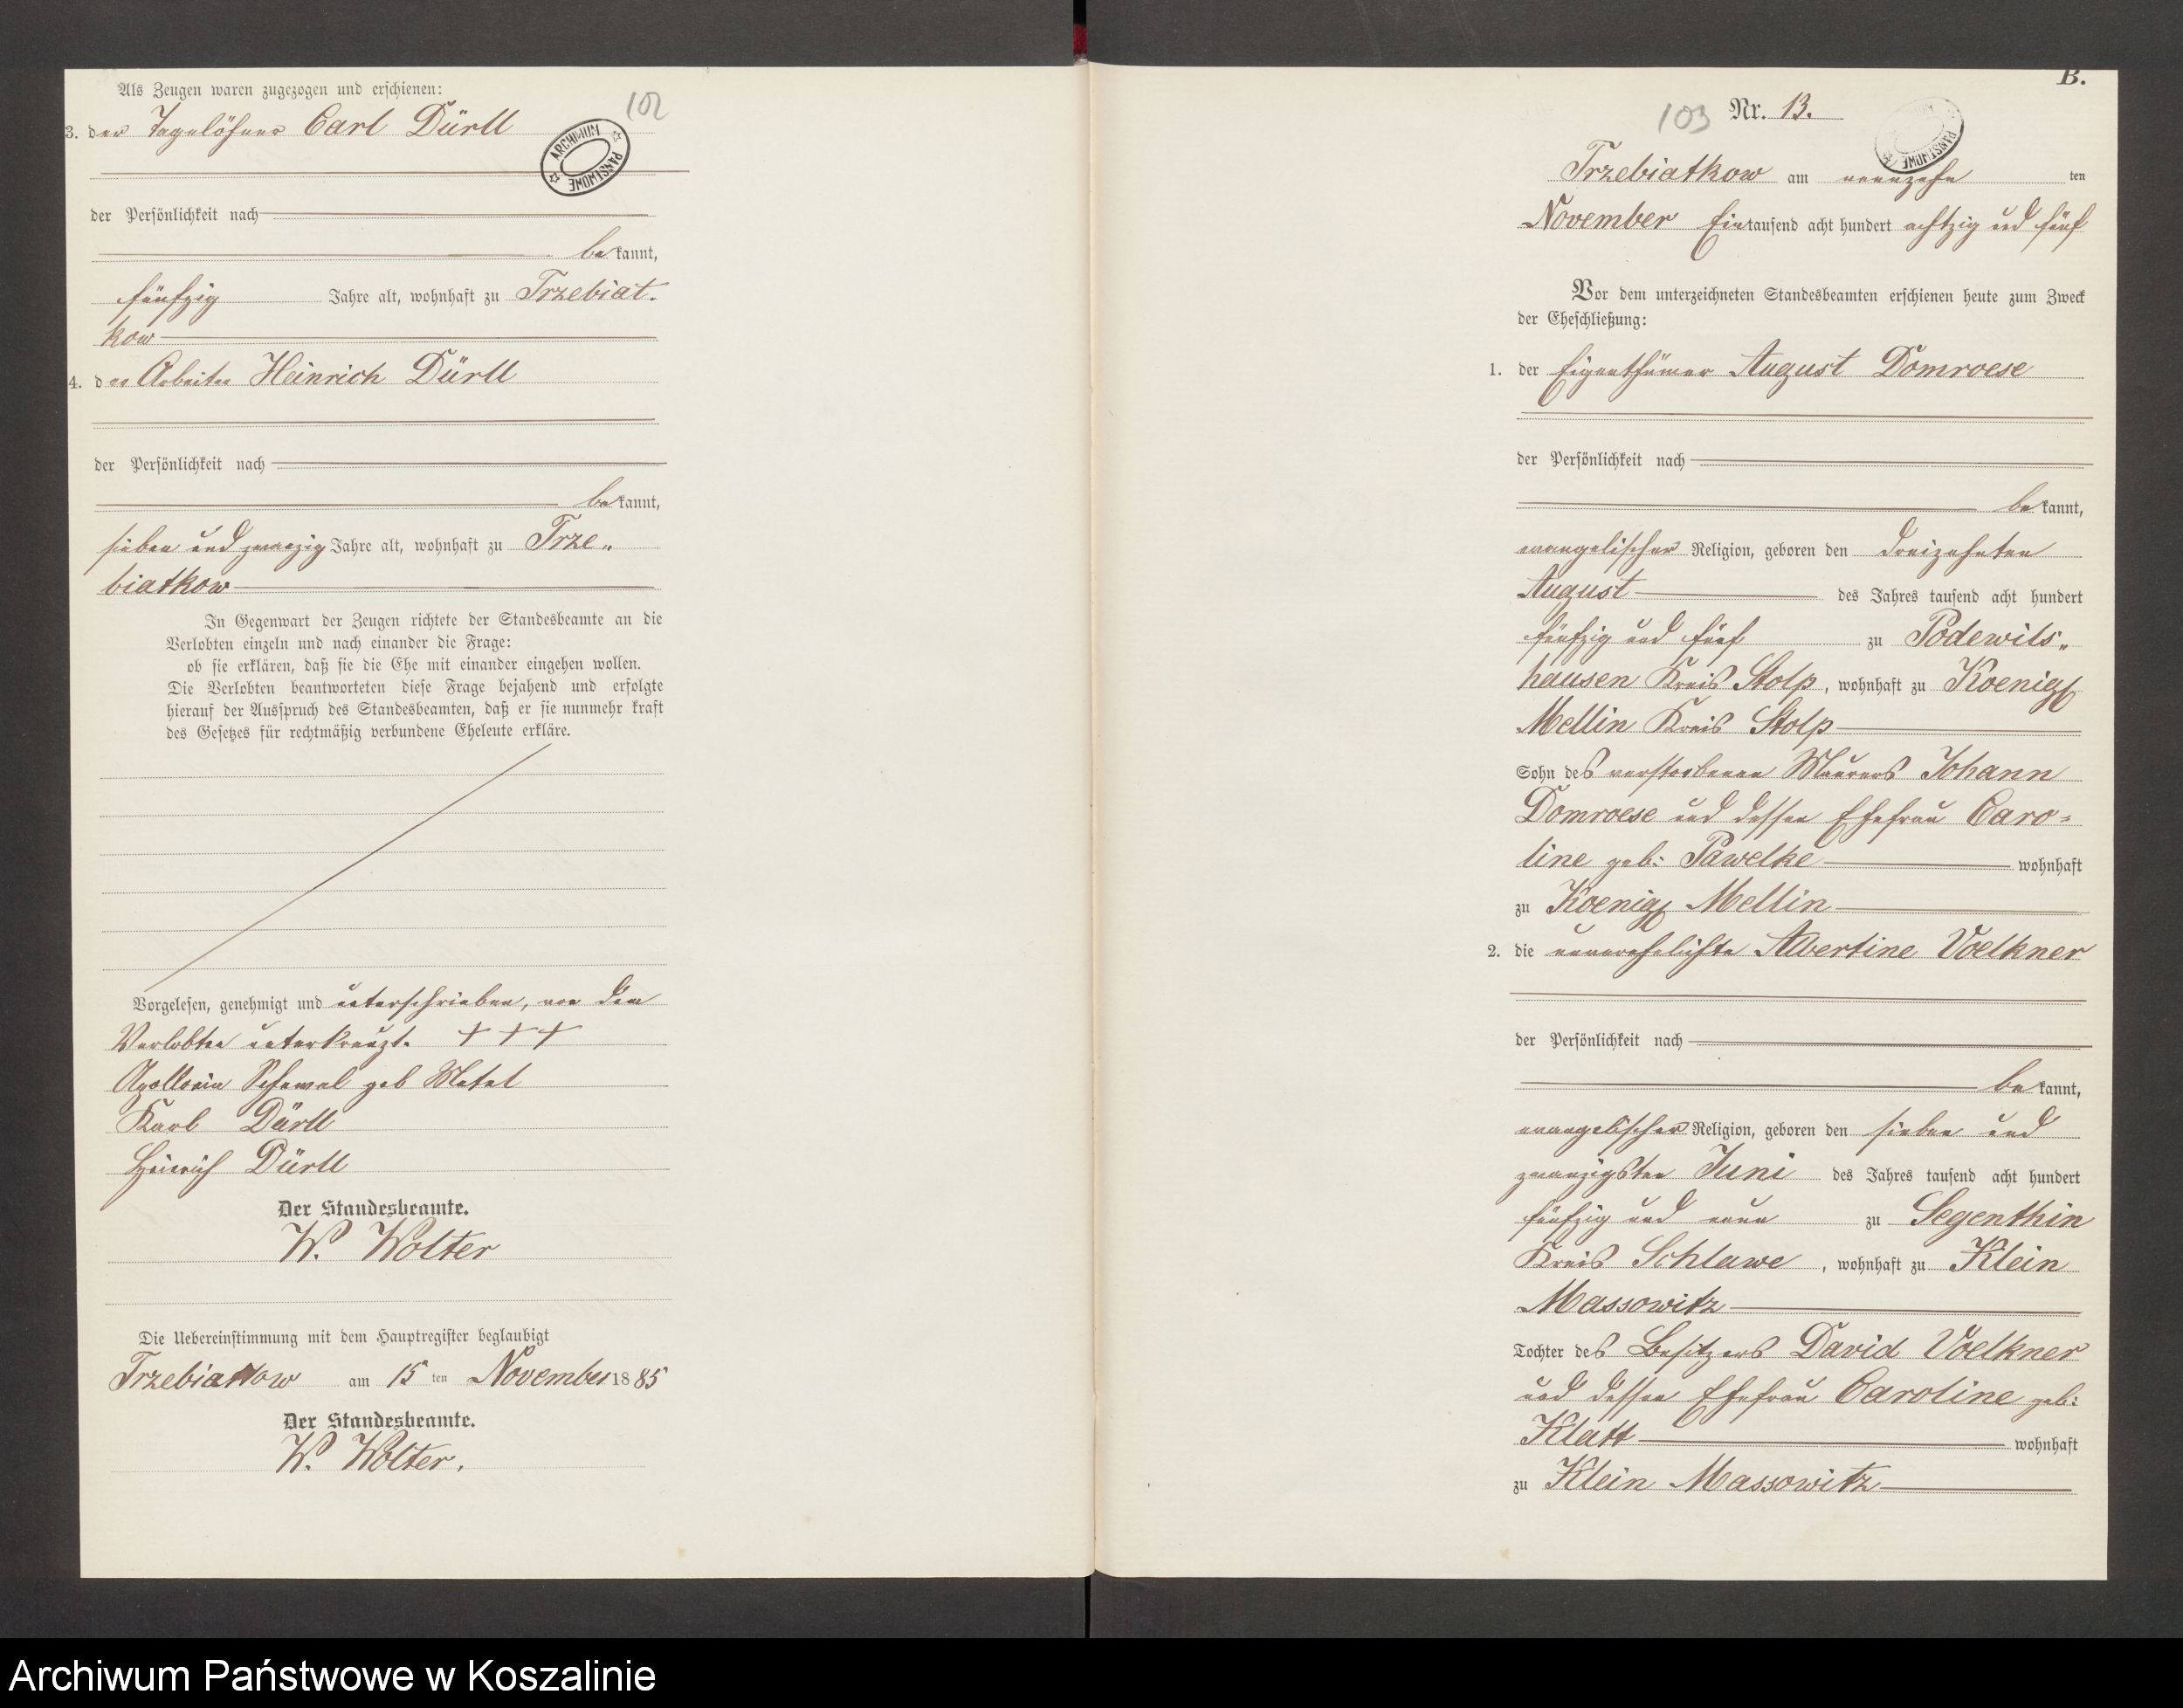 Als Zeugen waren zugezogen und erschienen:
102
3. der Tagelöhner Carl Dürll
ARCHIWUM PAŃSTWOWE
der Persönlichkeit nach
bekannt,
fünfzig Jahre alt, wohnhaft zu Trzebiat-
kow
4. der Arbeiter Heinrich Dürll
der Persönlichkeit nach
bekannt,
sieben und zwanzig Jahre alt, wohnhaft zu Trze„
biatkow
In Gegenwart der Zeugen richtete der Standesbeamte an die
Verlobten einzeln und nach einander die Frage:
ob sie erklären, daß sie die Ehe mit einander eingehen wollen.
Die Verlobten beantworteten diese Frage bejahend und erfolgte
hierauf der Ausspruch des Standesbeamten, daß er sie nunmehr kraft
des Gesetzes für rechtmäßig verbundene Eheleute erkläre.
Vorgelesen, genehmigt und unterschrieben, von dem
Verlobten unterkreuzt. + + +
geb
Karl Dürll
Heinrich Dürll
Der Standesbeamte.
W. Wolter
Die Uebereinstimmung mit dem Hauptregister beglaubigt
Trzebiatkow am 15 ten November 1885
Der Standesbeamte.
W. Wolter.
B.
103 Nr. 13.
PAŃSTWOWE
Trzebiatkow am neunzehn ten
November Eintausend acht hundert achtzig und fünf
Vor dem unterzeichneten Standesbeamten erschienen heute zum Zweck
der Eheschließung:
1. der Eigenthümer August Domroese
der Persönlichkeit nach
bekannt,
evangelischer Religion, geboren den dreizehnten
August des Jahres tausend acht hundert
fünfzig und fünf zu Podewils„
hausen Kreis Stolp, wohnhaft zu Koenigl
Mellin Kreis Stolp
Sohn des verstorbenen Maurers Johann
Domroese und dessen Ehefrau Caro=
line geb: Pawelke wohnhaft
zu Koenigl Mellin
2. die unverehelichte Albertine Voelkner
der Persönlichkeit nach
bekannt,
evangelischer Religion, geboren den sieben und
zwanzigsten Juni des Jahres tausend acht hundert
fünfzig und neun zu Segenthin
Kreis Schlawe, wohnhaft zu Klein
Massowitz
Tochter des Besitzers David Voelkner
und dessen Ehefrau Caroline geb:
Klatt wohnhaft
zu Klein Massowitz
Archiwum Państwowe w Koszalinie